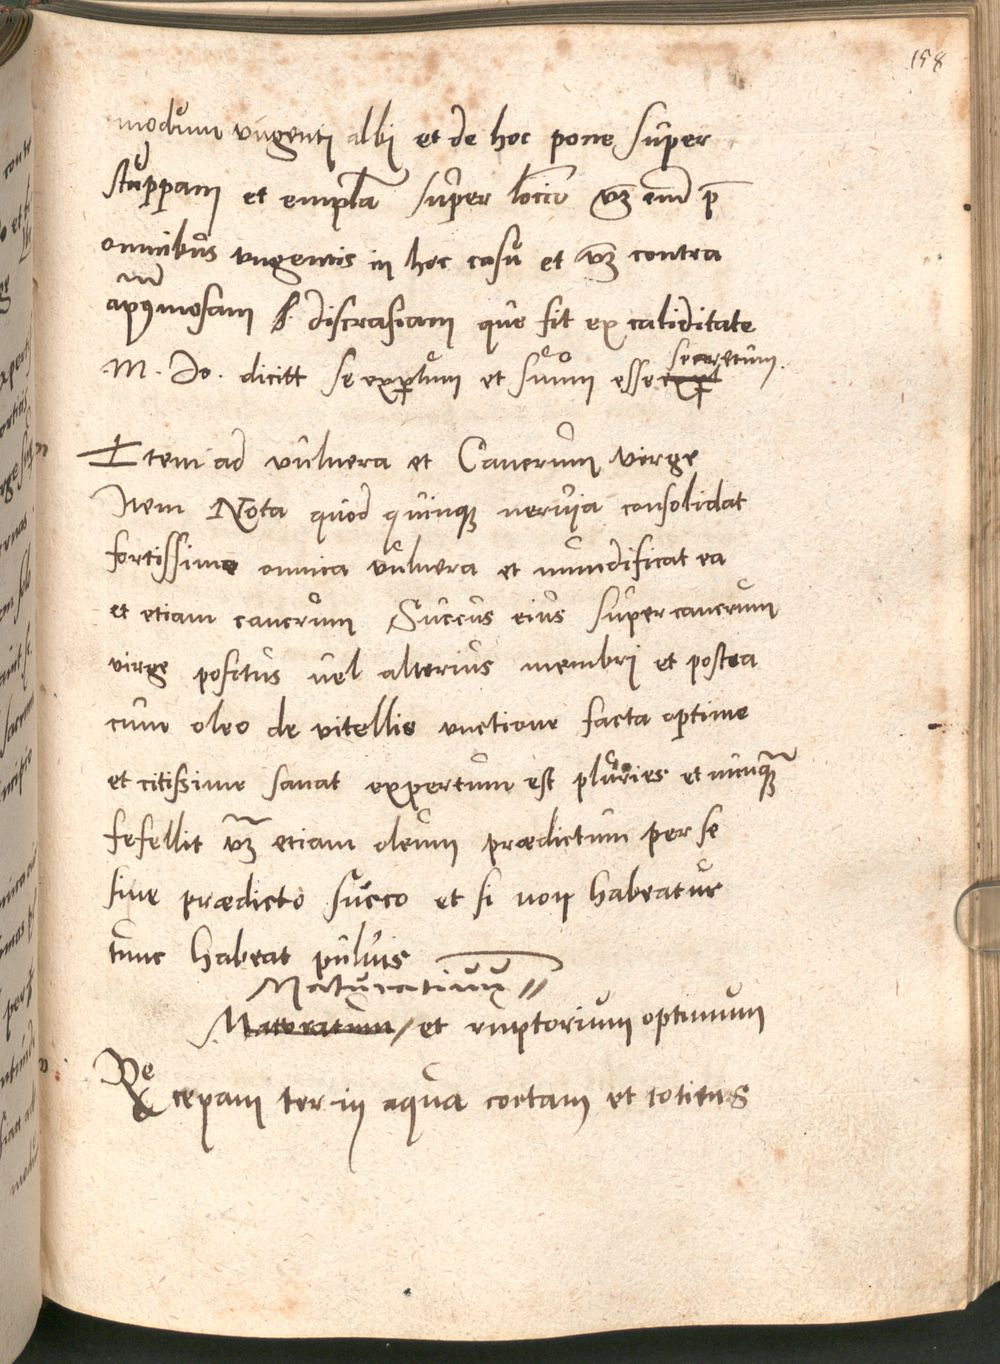 158
modum vngenti albi et de hoc pone super
stuppam et empl̄a super locū vꝫ em̄ p̄
omnibus vngentis in hoc casu et vꝫ contra
discrasiam que fit ex caliditate
M. Jo. dicitt se expertum et suum esse secretum.
Item ad vulnera et Cancrum virge
Item Nota quod quinqꝫ neruia consolidat
fortissime omnia vulnera et mundificat ea
et etiam cancrum Succus eius super cancrum
virge positus uel alterius membri et postea
cum oleo de vitellis vnctione facta optime
et citissime sanat expertum est pluries et nunquā
fefellit vꝫ etiam oleum prædictum per se
siue prædicto succo et si non habeatur
tunc habeat puluis
Maturatiuū //
Maturatum / et ruptorium optimum
Re cepam ter in aqua coctam et totiens